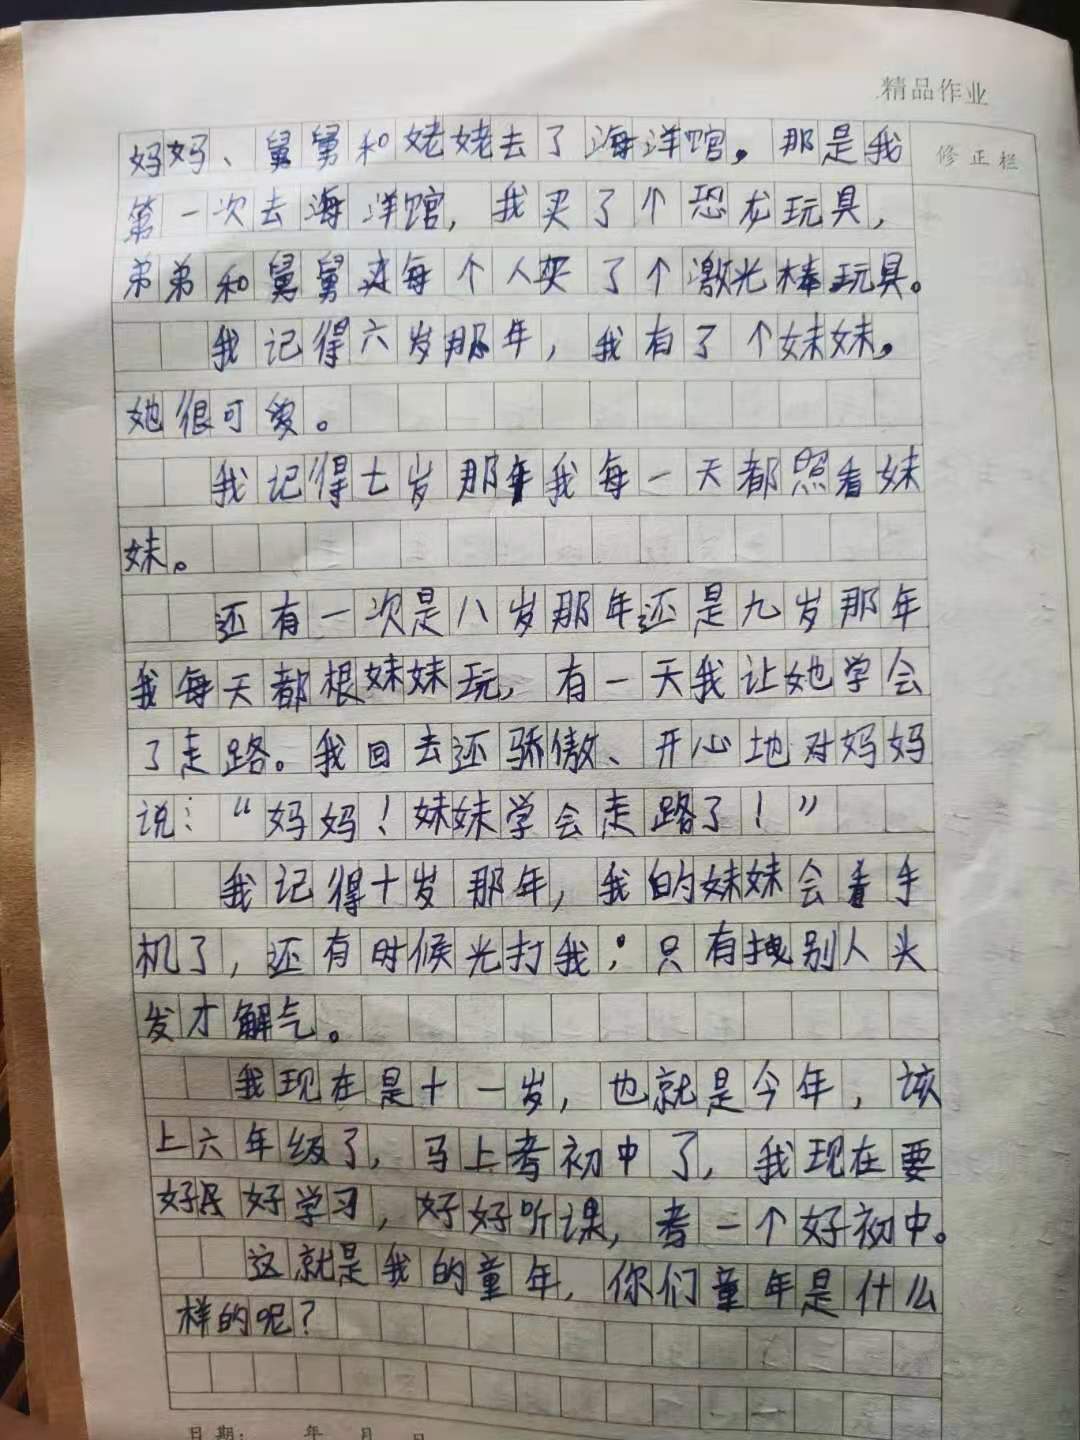 精品作业
修正栏
妈妈、舅舅和姥姥去了海洋馆。那是我
第一次去海洋馆，我买了个恐龙玩具，
弟弟和舅舅每个人买了个激光棒玩具。
我记得六岁那年，我有了个妹妹。
她很可爱。
我记得七岁那年我每一天都照看妹
妹。
还有一次是八岁那年还是九岁那年
我每天都根妹妹玩，有一天我让她学会
了走路。我回去还骄傲、开心地对妈妈
说：“妈妈！妹妹学会走路了！”
我记得十岁那年，我的妹妹会看手
机了，还有时候光打我；只有拽别人头
发才解气。
我现在是十一岁，也就是今年，该
上六年级了，马上考初中了，我现在要
好好学习，好好听课，考一个好初中。
这就是我的童年，你们童年是什么
样的呢？
日期： 年 月 日